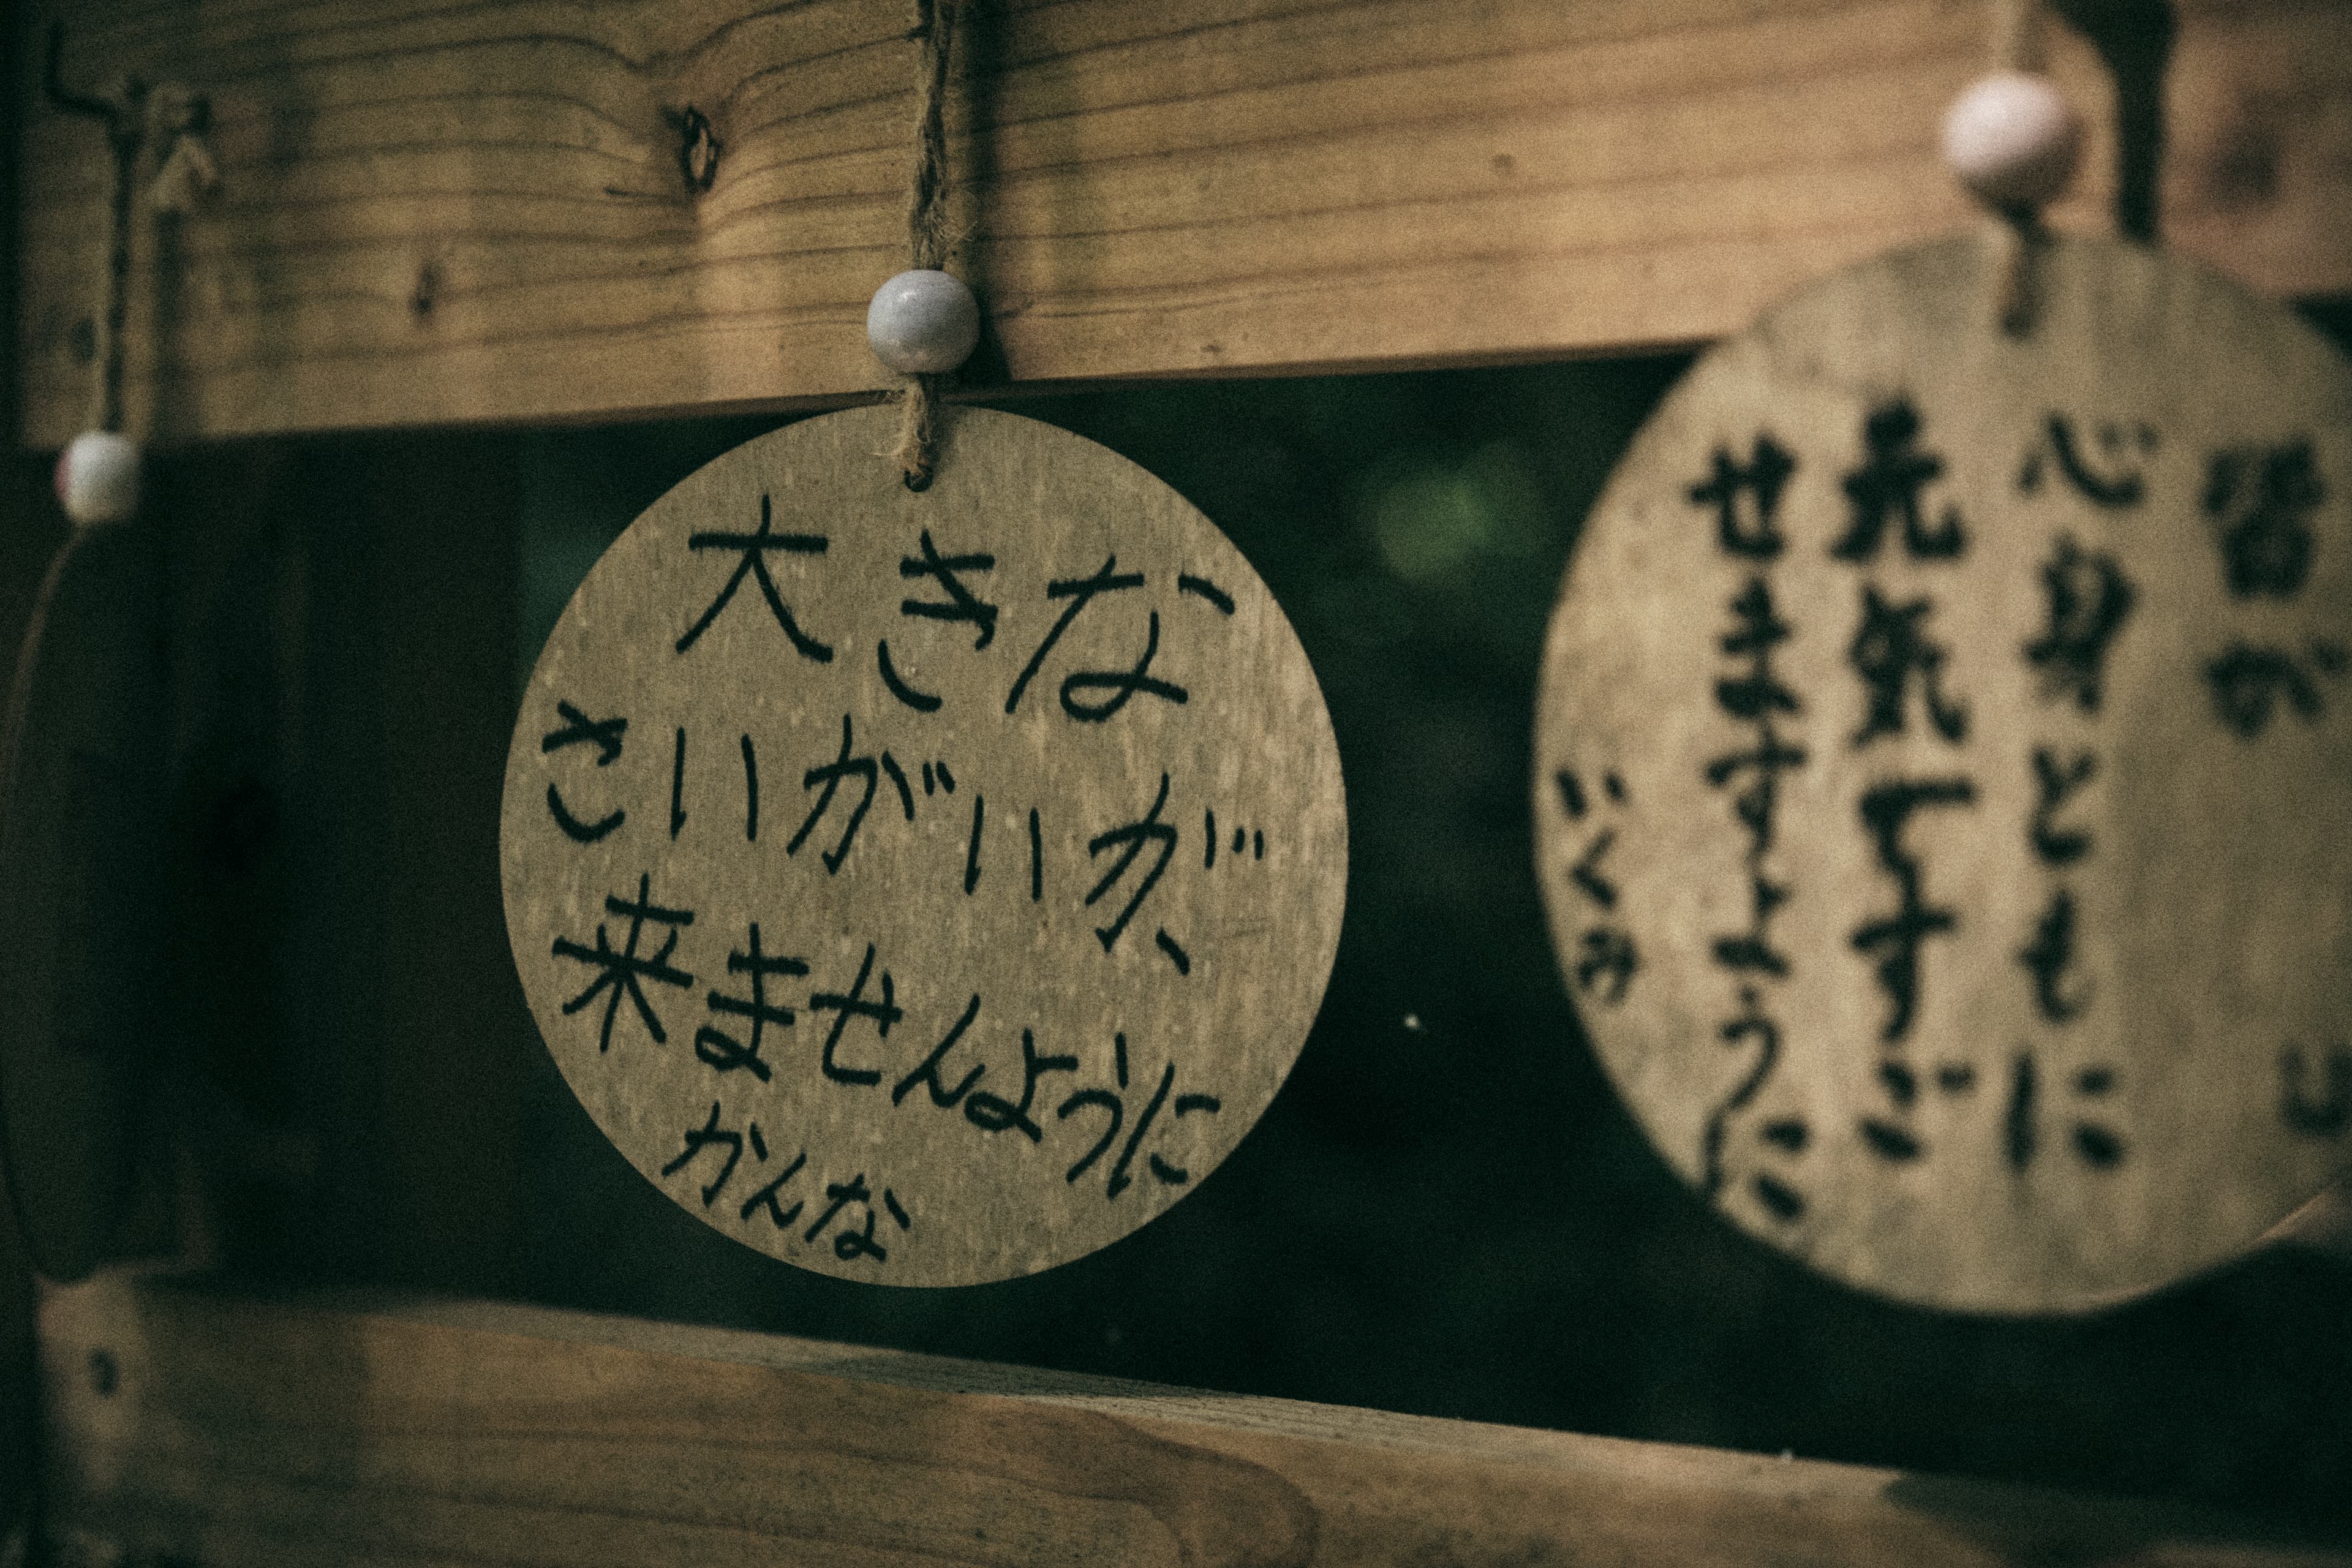 大きな
さいがいが、
来ませんように
かんな
皆が
心身ともに
元気ですご
せますように
いくみ